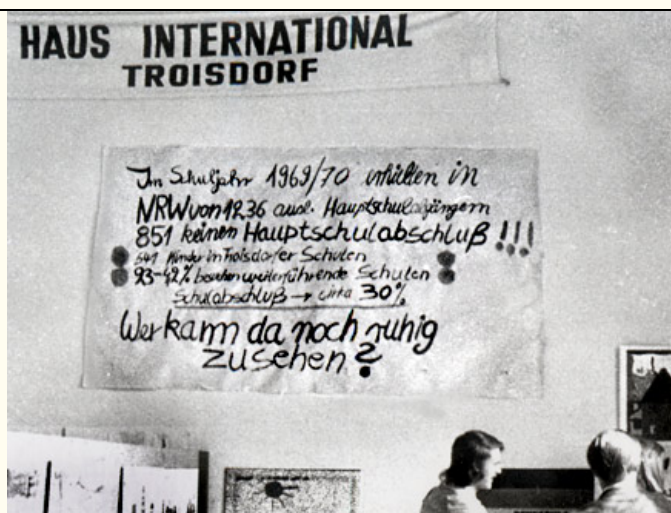 HAUS INTERNATIONAL
TROISDORF
Im Schuljahr 1969/70 erhielten in
NRW von 1236 ausl. Hauptschulabgängern
851 keinen Hauptschulabschluß !!!
541 Kinder in Troisdorfer Schulen
93-42% besuchen weiterführende Schulen
Schulabschluß → cirka 30%
Wer kann da noch ruhig
zusehen?